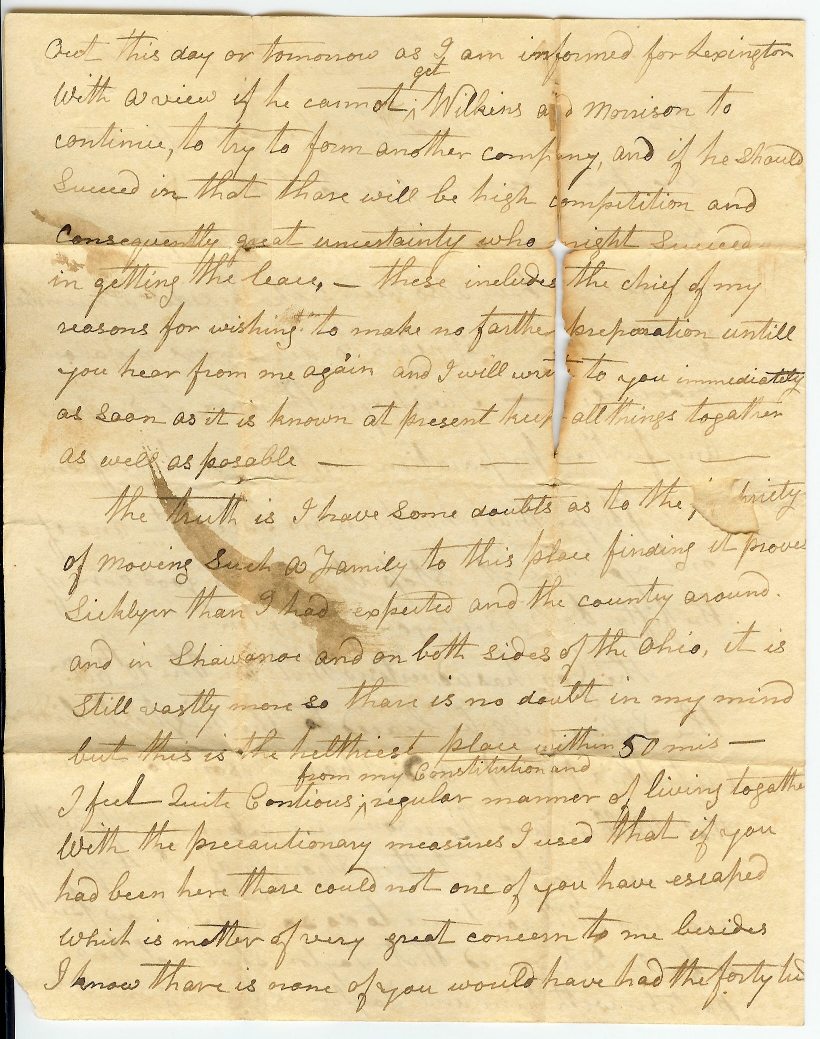 Out this day or tomorrow as I am informed for Lexington
get
With a view if he cannot Wilkins and Morrison to
continue, to try to form another company, and if he should
Succeed in that thare will be high competition and
consequently great uncertainty who might Succeed
in getting the lease, — these includes the chief of my
reasons for wishing to make no farther preparation untill
you hear from me again and I will write to you immediately
as soon as it is known at present keep all things together
as well as posable — — — — — —
the truth is I have some doubts as to the
of moving Such a Family to this place finding it proves
Sicklyer than I had expected and the country around.
and in Shawanoe and on both sides of the Ohio, it is
Still vastly more so thare is no doubt in my mind
but this is the helthiest place within 50 mis —
from my Constitution and
I feel Quite Contious, regular manner of living togather
With the precautionary measures I used that if you
had been here thare could not one of you have escaped
which is matter of very great concern to me besides
I know thare is none of you would have had the